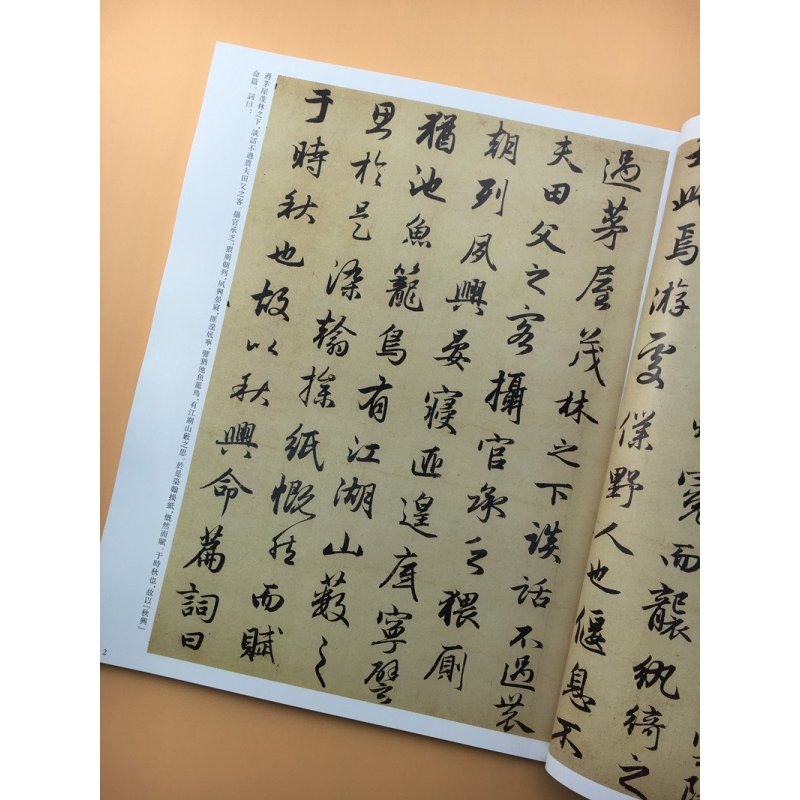 冕而襲紈綺之
士此焉游處僕野人也偃息不
過茅屋茂林之下談話不過農
夫田父之客攝官承乏猥廁
朝列夙興晏寢匪遑底寧譬
猶池魚籠鳥有江湖山藪之
思於是染翰操紙慨然而賦
于時秋也故以秋興命篇詞曰
過茅屋茂林之下，談話不過農夫田父之客。攝官承乏，猥廁朝列，夙興晏寢，匪遑底寧，譬猶池魚籠鳥，有江湖山藪之思。於是染翰操紙，慨然而賦。于時秋也，故以『秋興』
命篇。詞曰：
2